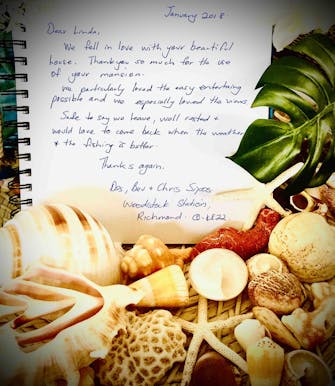 January 2018
Dear Linda,
We fell in love with your beautiful
house. Thankyou so much for the use
of your mansion.
We particularly loved the easy entertaining
possible and we especially loved the views.
Safe to say we leave, well rested &
would love to come back when the weather
& the fishing is better.
Thanks again.
Des, Bev & Chris
Woodstock Station,
Richmond. 4822